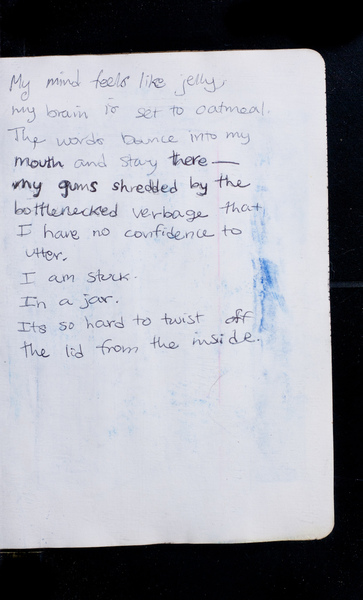 My mind feels like jelly,
my brain is set to oatmeal.
The words bounce into my
mouth and stay there—
my gums shredded by the
bottlenecked verbage that
I have no confidence to
utter.
I am stuck.
In a jar.
Its so hard to twist off
the lid from the inside.